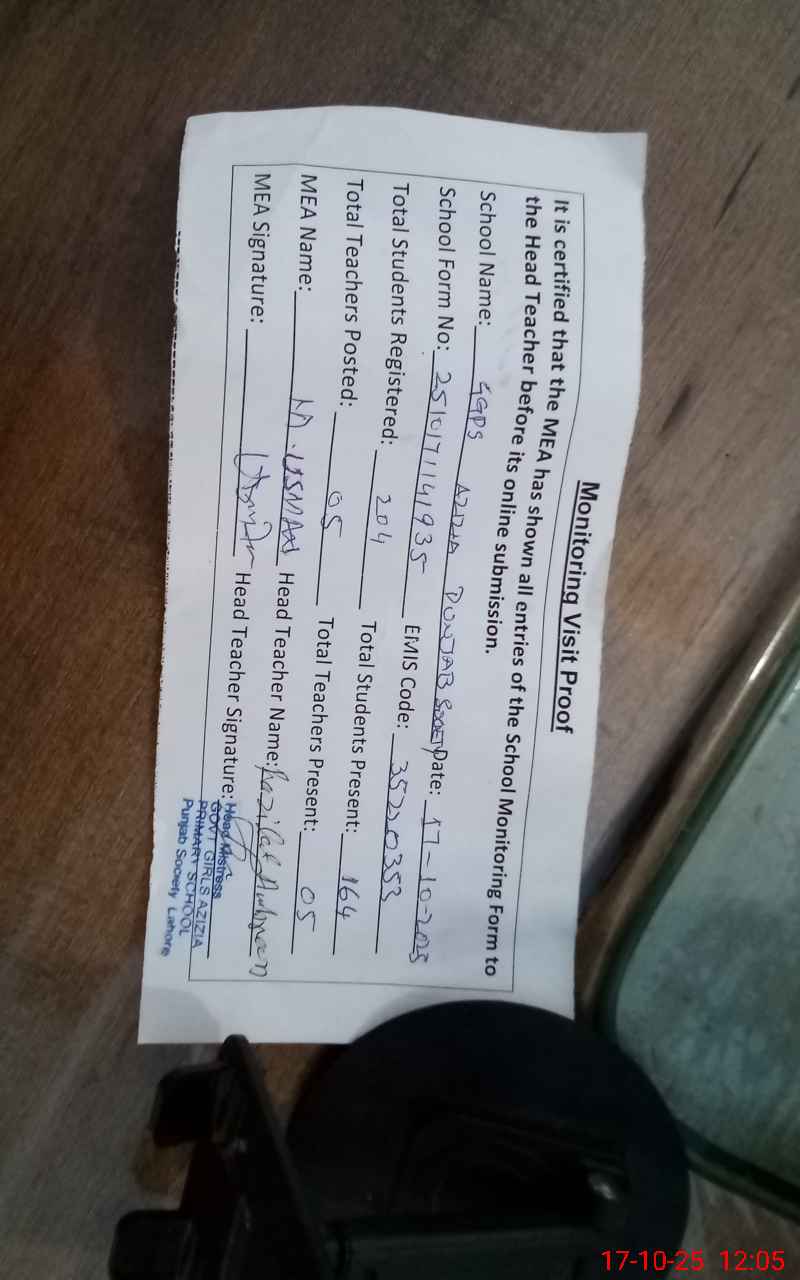 Monitoring Visit Proof
It is certified that the MEA has shown all entries of the School Monitoring Form to
the Head Teacher before its online submission.
School Name: GGPS AZIZIA PUNJAB Society Date: 17-10-2025
School Form No: 2510171141935 EMIS Code: 35220353
Total Students Registered: 204 Total Students Present: 164
Total Teachers Posted: 05 Total Teachers Present: 05
MEA Name: M. USMAN Head Teacher Name:
MEA Signature: Head Teacher Signature:
Head Mistress
GOVT GIRLS AZIZIA
PRIMARY SCHOOL
Punjab Society Lahore
17-10-25 12:05